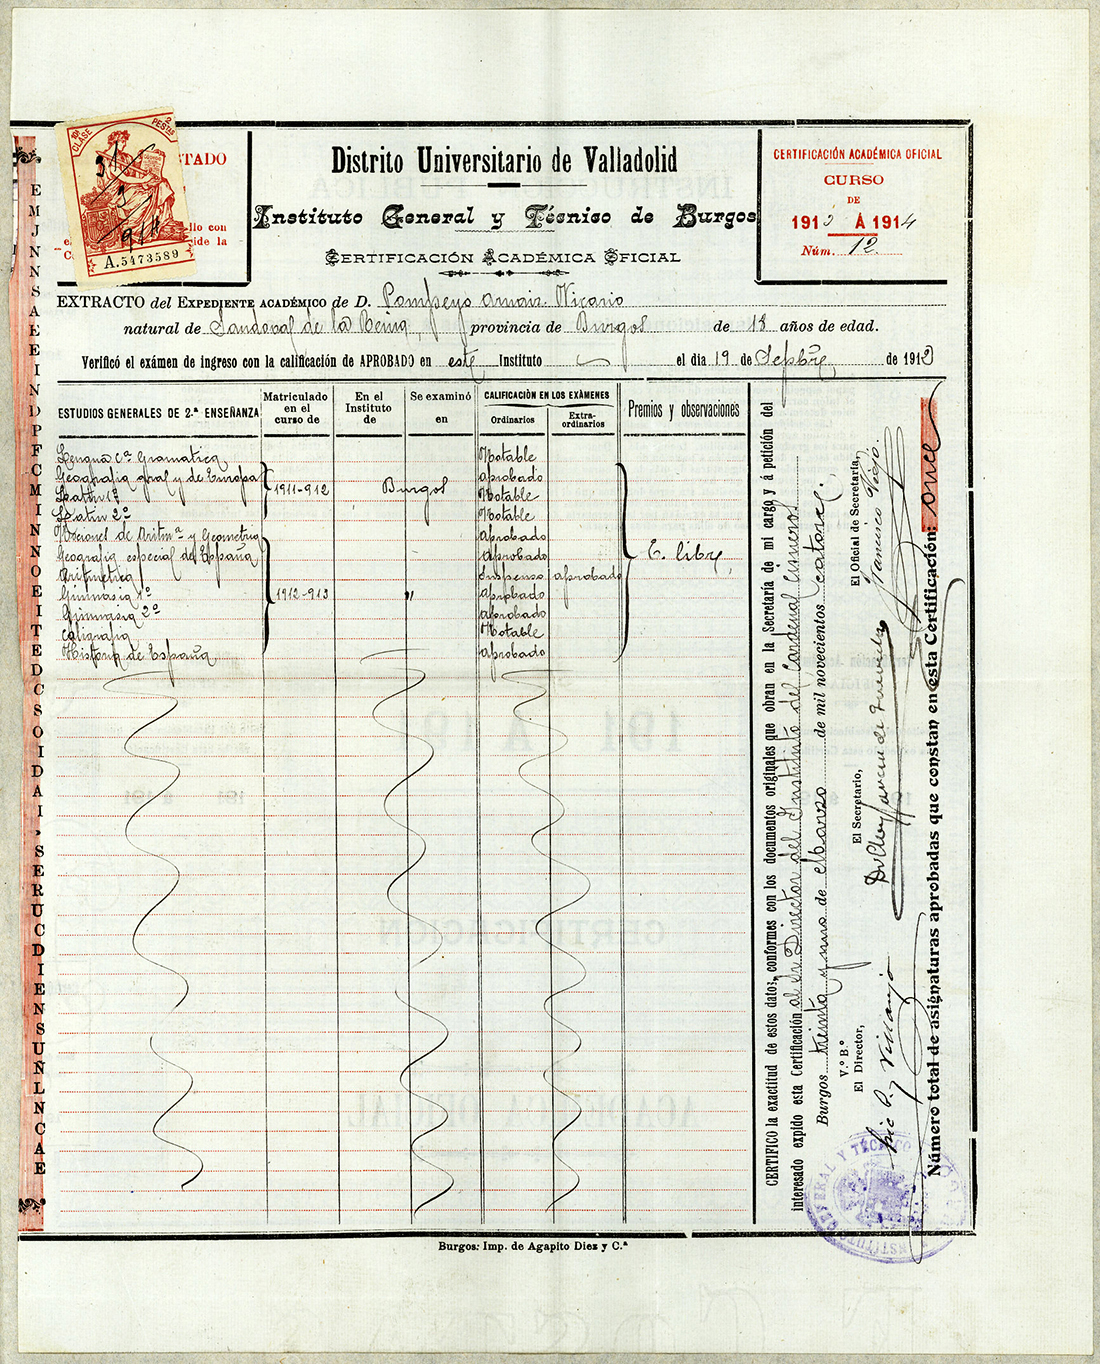 10ª CLASE
2 PESTAS
31/3/914
A.5473589
STADO
llo con
ide la
Distrito Universitario de Valladolid
Instituto General y Técnico de Burgos
CERTIFICACIÓN ACADÉMICA OFICIAL
CERTIFICACIÓN ACADÉMICA OFICIAL
CURSO
DE
1913 Á 1914
Núm. 12.
EXTRACTO del EXPEDIENTE ACADÉMICO de D. Pompeyo Arnaiz Vicario
natural de Sandoval de la Reina, provincia de Burgos de 13 años de edad.
Verificó el exámen de ingreso con la calificación de APROBADO en este Instituto el día 19 de Sepbre, de 1912
ESTUDIOS GENERALES DE 2.ª ENSEÑANZA
Matriculado en el curso de
En el Instituto de
Se examinó en
CALIFICACIÓN EN LOS EXÁMENES
Ordinarios
Extra-ordinarios
Premios y observaciones
Lengua Cª Gramatica Notable
Geografia gral y de Europa aprobado
Latin 1º 1911-912 Burgos Notable
Latin 2º Notable
Nociones de Aritmª y Geometria aprobado
Geografia especial de España aprobado E. libre,
Aritmetica Suspenso aprobado
Gimnasia 1º 1912-913 " aprobado
Gimnasia 2º aprobado
Caligrafia Notable
Historia de España aprobado
CERTIFICO la exactitud de estos datos, conformes con los documentos originales que obran en la Secretaría de mi cargo y á petición del
interesado expido esta Certificación al Sr Director del Instituto del Cardenal Cisneros
Burgos treinta y uno de Marzo de mil novecientos catorce.
V.º B.º
El Director,
El Secretario,
El Oficial de Secretaría,
Francisco Viejo.
Número total de asignaturas aprobadas que constan en esta Certificación: once
INSTITUTO GENERAL Y TÉCNICO
Burgos: Imp. de Agapito Diez y C.ª